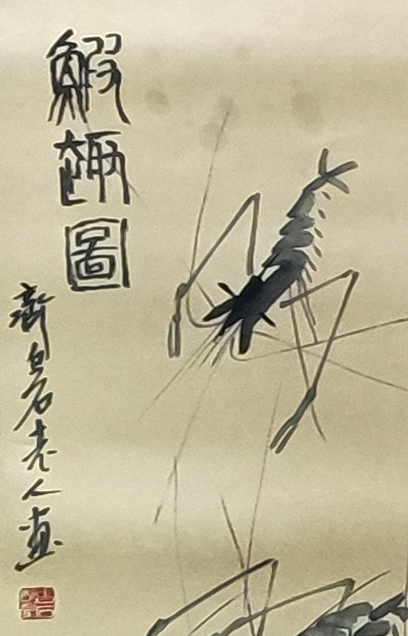 鰕趣圖
齊白石老人畫